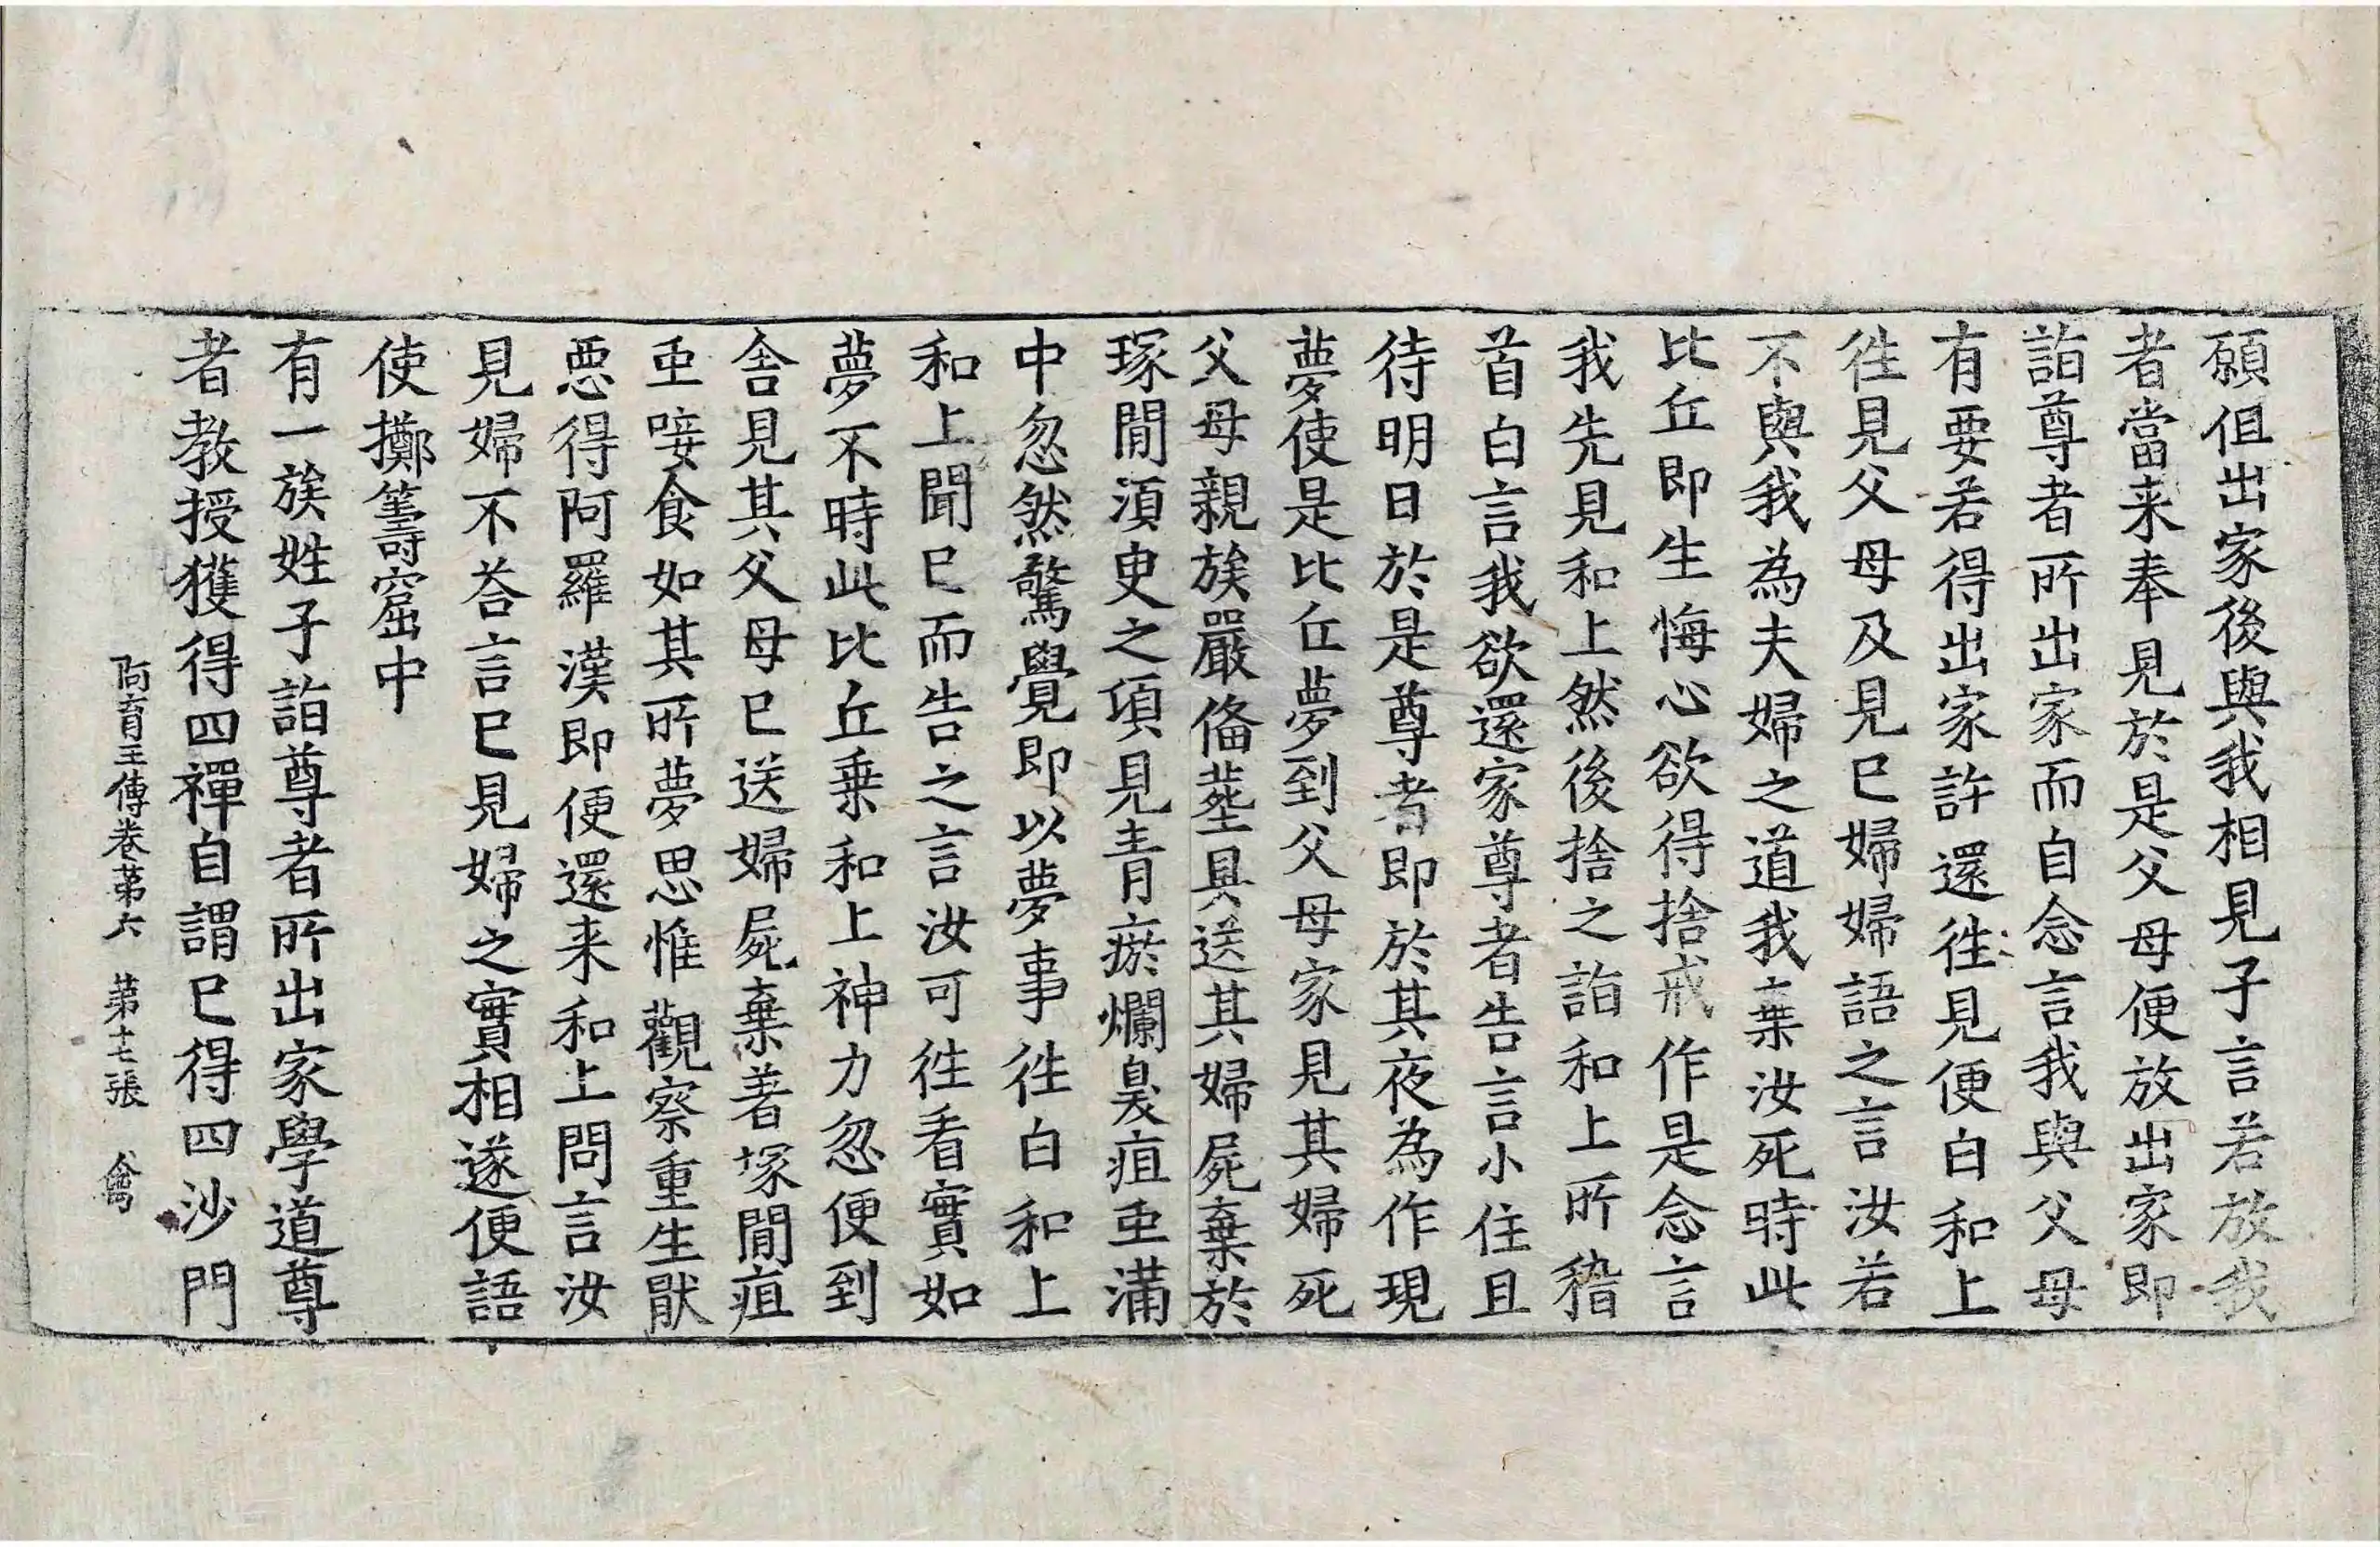 願但出家後與我相見子言若放我
者當来奉見於是父母便放出家即
詣尊者所出家而自念言我與父母
有要若得出家許還徃見便白和上
徃見父母及見已婦婦語之言汝若
不與我為夫婦之道我棄汝死時此
比丘即生悔心欲得捨戒作是念言
我先見和上然後捨之詣和上所稽
首白言我欲還家尊者告言小住且
待明日於是尊者即於其夜為作現
夢使是比丘夢到父母家見其婦死
父母親族嚴俻塟具送其婦屍棄於
塚閒湏臾之頃見青瘀爛臭疽重滿
中忽然驚覺即以夢事徃白和上
和上聞已而告之言汝可徃看實如
夢不時此比丘乗和上神力忽便到
舍見其父母已送婦屍棄著塚閒疽
重唼食如其所夢思惟觀察重生猒
悪得阿羅漢即便還来和上問言汝
見婦不荅言已見婦之實相遂便語
使擲籌窟中
有一族姓子詣尊者所出家學道尊
者教授獲得四禪自謂已得四沙門
阿育王傳卷第六 第十七張 禽